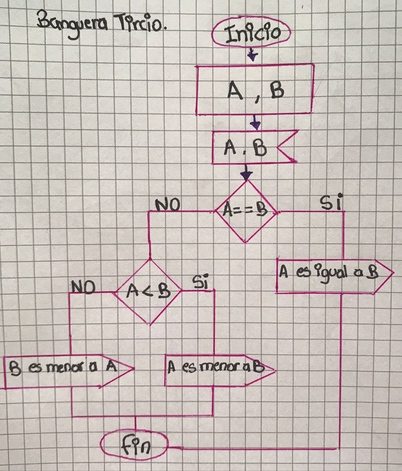 Banguera Tircio.
Inicio
A, B
A, B
A==B
NO
SI
A es igual a B
A<B
NO
Si
B es menor a A
A es menor a B
Fin